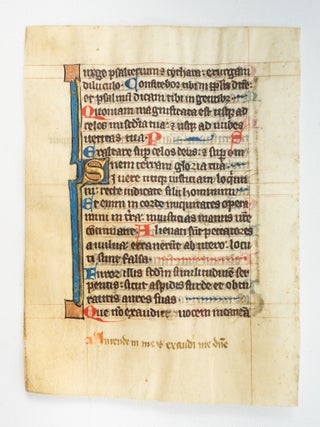 surge psalterium & cythara: exurgam
diluculo. Confitebor tibi in pplis dne:
et psalmu dicam tibi in gentibz.
Quoniam magnificata est usqz ad
celos misericordia tua: & usqz ad nubes
ueritas tua.
Exaltare sup celos deus: & sup om
nem terram gloria tua.
Si uere utiqz iusticiam loqmi
ni: recte iudicate filii hominum.
Et enim in corde iniquitates opera
mini in tra: iniusticias manus ure
concinnant. Alienati sunt peccatores
a uulua: errauerunt ab utero: locuti
sunt falsa.
Furor illis scdm similitudine ser
pentis: sicut aspidis surde et obtu
rantis aures suas.
Que no exaudiet uocem incantan
Intende in me & exaudi me dne